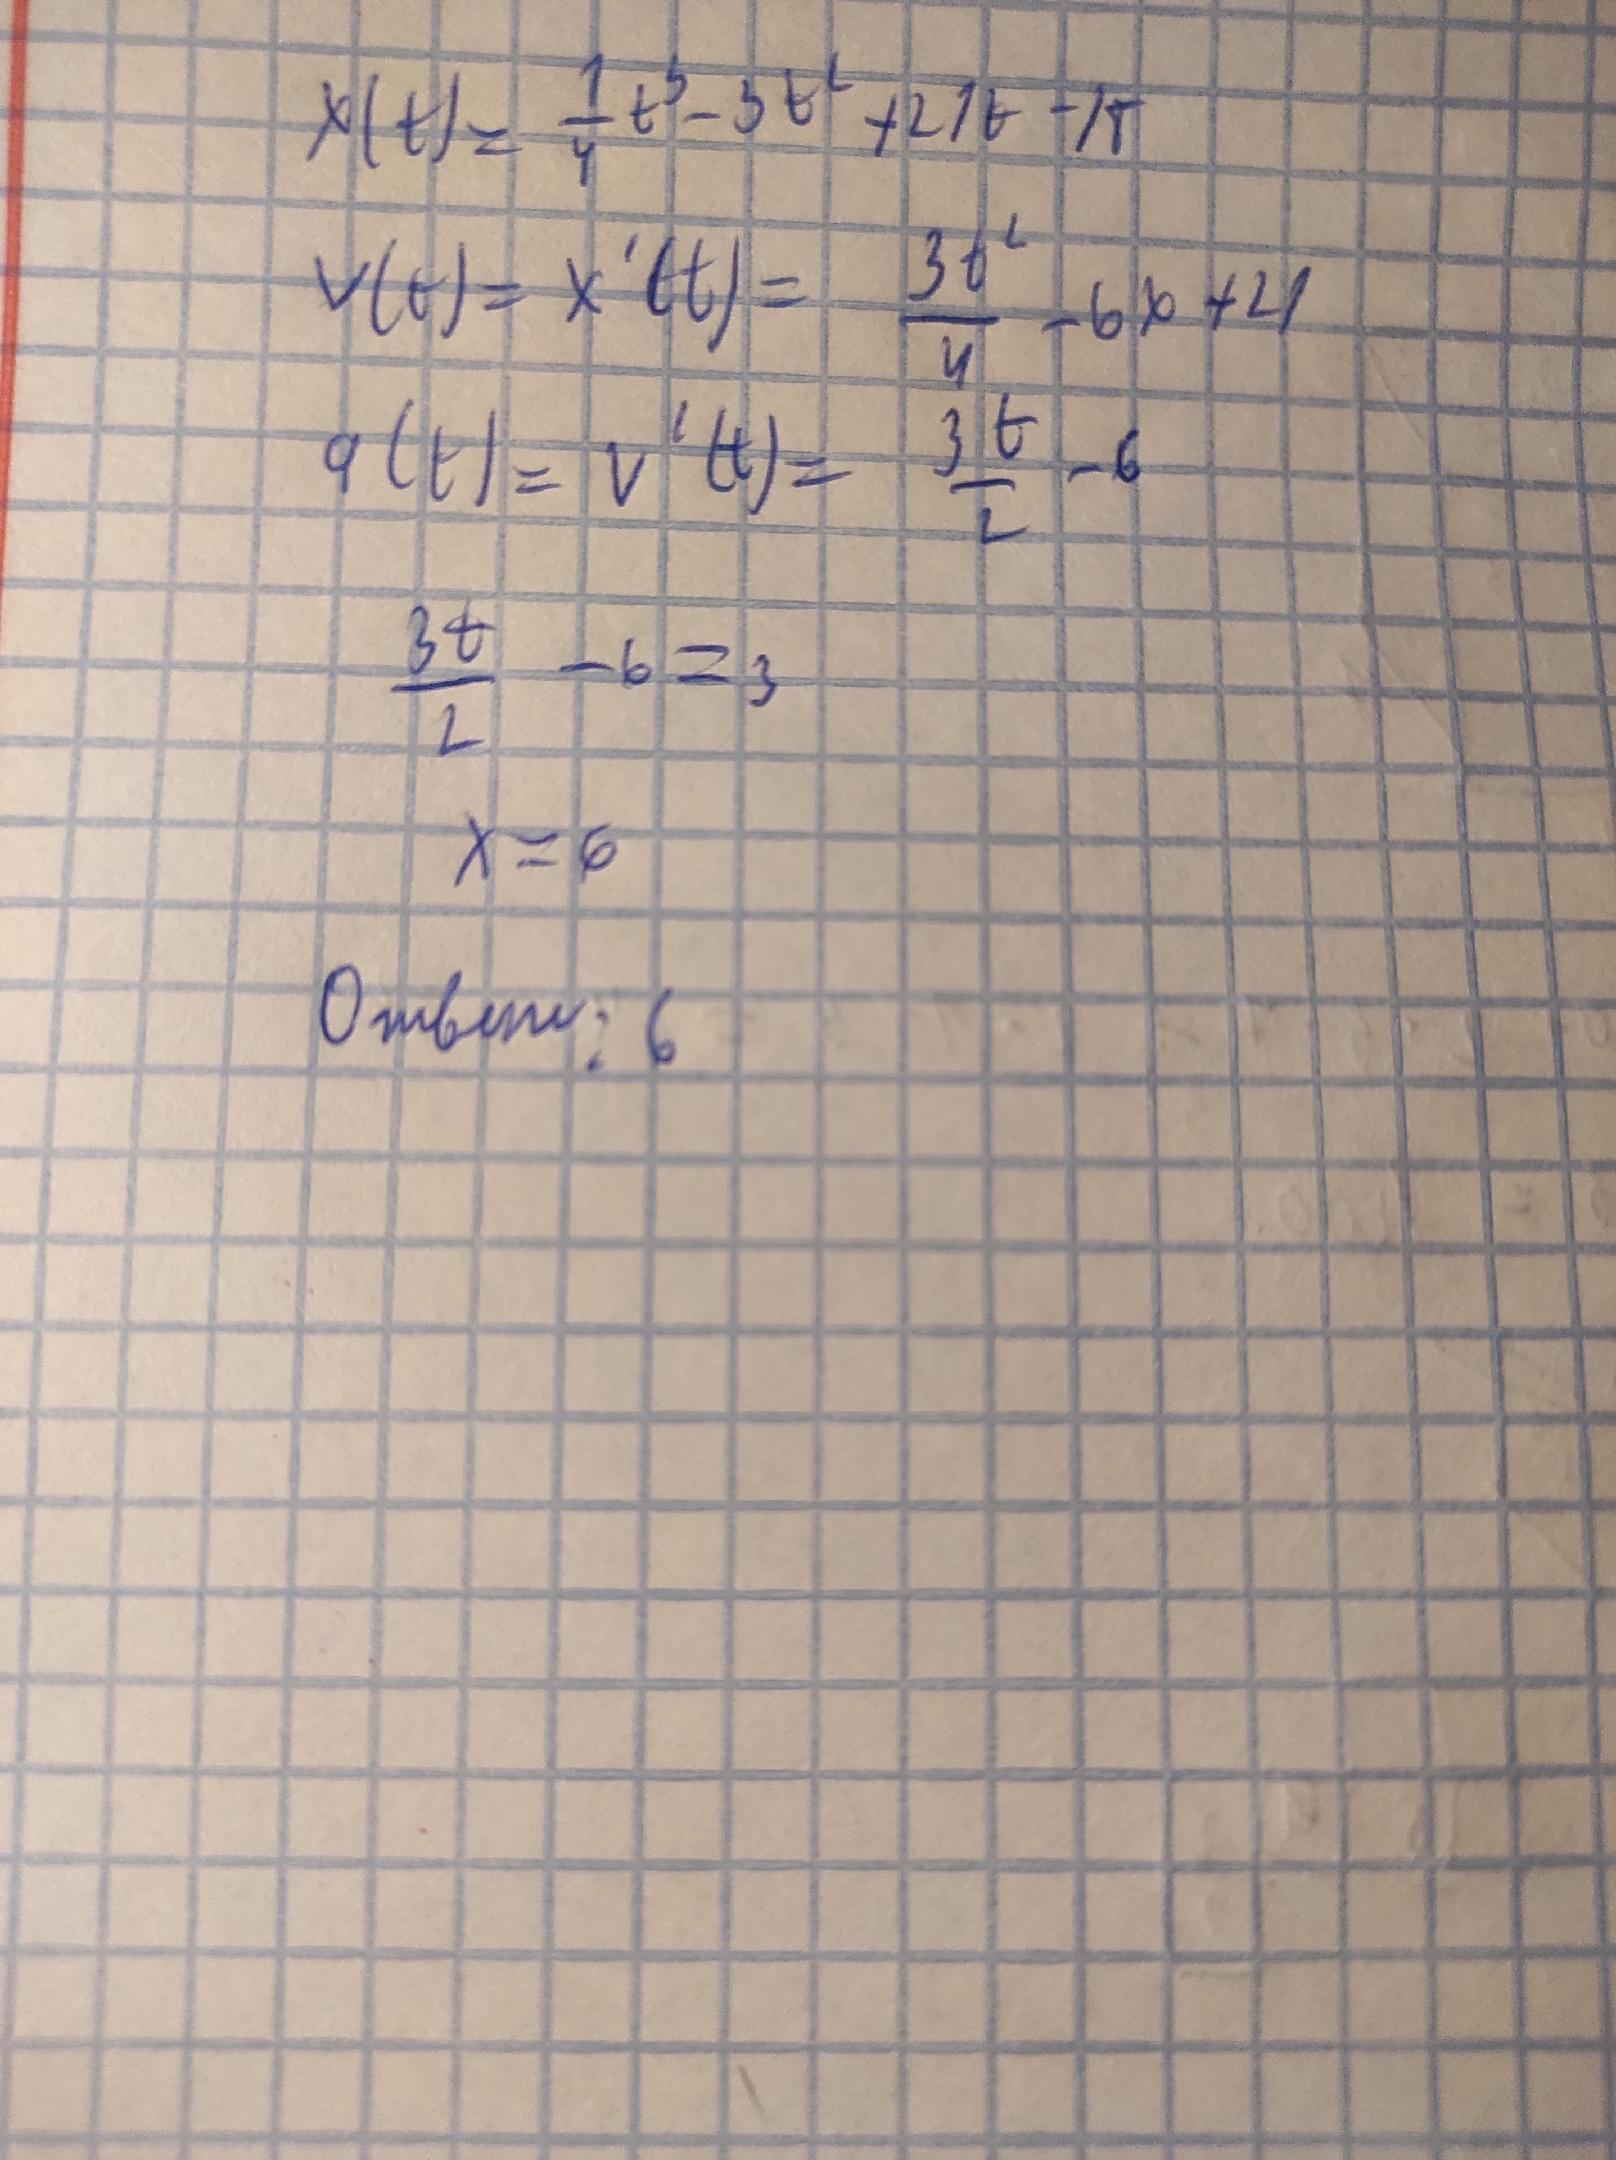 x(t) = 1/4 t³ - 3t² + 21t - 15
v(t) = x'(t) = 3t²/4 - 6x + 21
a(t) = v'(t) = 3t/2 - 6
3t/2 - 6 = 3
x = 6
Ответ: 6